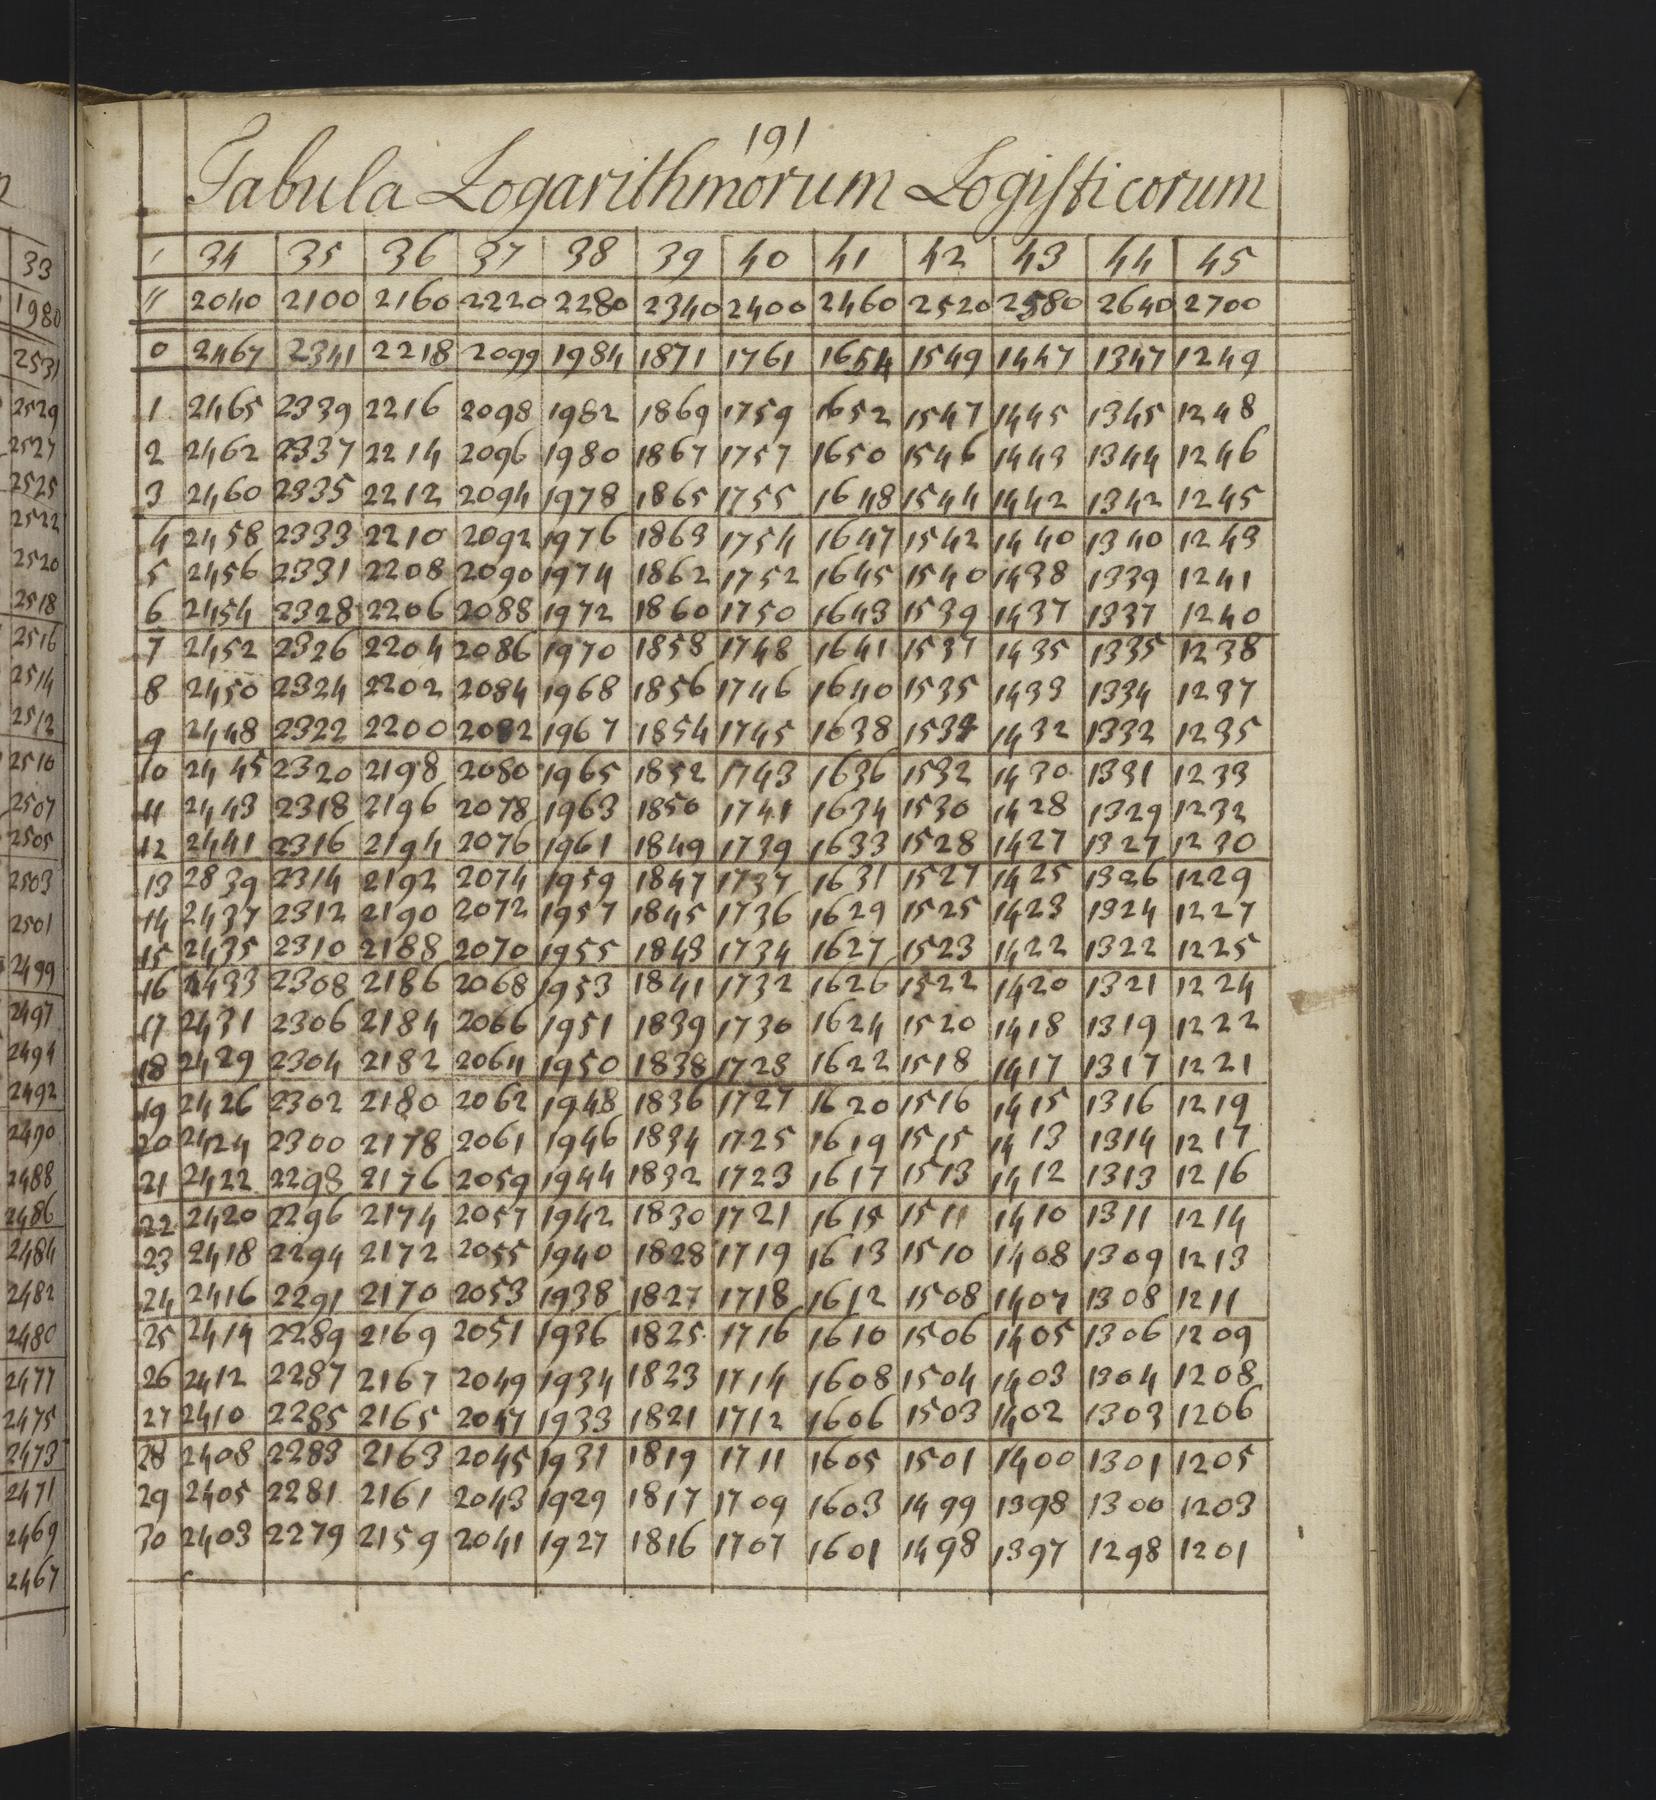 191
Tabula Logarithmorum Logisticorum
′ 34 35 36 37 38 39 40 41 42 43 44 45
″ 2040 2100 2160 2220 2280 2340 2400 2460 2520 2580 2640 2700
0 2467 2341 2218 2099 1984 1871 1761 1654 1549 1447 1347 1249
1 2465 2339 2216 2098 1982 1869 1759 1652 1547 1445 1345 1248
2 2462 2337 2214 2096 1980 1867 1757 1650 1546 1443 1344 1246
3 2460 2335 2212 2094 1978 1865 1755 1648 1544 1442 1342 1245
4 2458 2333 2210 2092 1976 1863 1754 1647 1542 1440 1340 1243
5 2456 2331 2208 2090 1974 1862 1752 1645 1540 1438 1339 1241
6 2454 2328 2206 2088 1972 1860 1750 1643 1539 1437 1337 1240
7 2452 2326 2204 2086 1970 1858 1748 1641 1537 1435 1335 1238
8 2450 2324 2202 2084 1968 1856 1746 1640 1535 1433 1334 1237
9 2448 2322 2200 2082 1967 1854 1745 1638 1534 1432 1332 1235
10 2445 2320 2198 2080 1965 1852 1743 1636 1532 1430 1331 1233
11 2443 2318 2196 2078 1963 1850 1741 1634 1530 1428 1329 1232
12 2441 2316 2194 2076 1961 1849 1739 1633 1528 1427 1327 1230
13 2839 2314 2192 2074 1959 1847 1737 1631 1527 1425 1326 1229
14 2437 2312 2190 2072 1957 1845 1736 1629 1525 1423 1324 1227
15 2435 2310 2188 2070 1955 1843 1734 1627 1523 1422 1322 1225
16 2433 2308 2186 2068 1953 1841 1732 1626 1522 1420 1321 1224
17 2431 2306 2184 2066 1951 1839 1730 1624 1520 1418 1319 1222
18 2429 2304 2182 2064 1950 1838 1728 1622 1518 1417 1317 1221
19 2426 2302 2180 2062 1948 1836 1727 1620 1516 1415 1316 1219
20 2424 2300 2178 2061 1946 1834 1725 1619 1515 1413 1314 1217
21 2422 2298 2176 2059 1944 1832 1723 1617 1513 1412 1313 1216
22 2420 2296 2174 2057 1942 1830 1721 1615 1511 1410 1311 1214
23 2418 2294 2172 2055 1940 1828 1719 1613 1510 1408 1309 1213
24 2416 2291 2170 2053 1938 1827 1718 1612 1508 1407 1308 1211
25 2414 2289 2169 2051 1936 1825 1716 1610 1506 1405 1306 1209
26 2412 2287 2167 2049 1934 1823 1714 1608 1504 1403 1304 1208
27 2410 2285 2165 2047 1933 1821 1712 1606 1503 1402 1303 1206
28 2408 2283 2163 2045 1931 1819 1711 1605 1501 1400 1301 1205
29 2405 2281 2161 2043 1929 1817 1709 1603 1499 1398 1300 1203
30 2403 2279 2159 2041 1927 1816 1707 1601 1498 1397 1298 1201
33
1980
2531
2529
2527
2525
2522
2520
2518
2516
2514
2512
2510
2507
2505
2503
2501
2499
2497
2494
2492
2490
2488
2486
2484
2482
2480
2477
2475
2473
2471
2469
2467